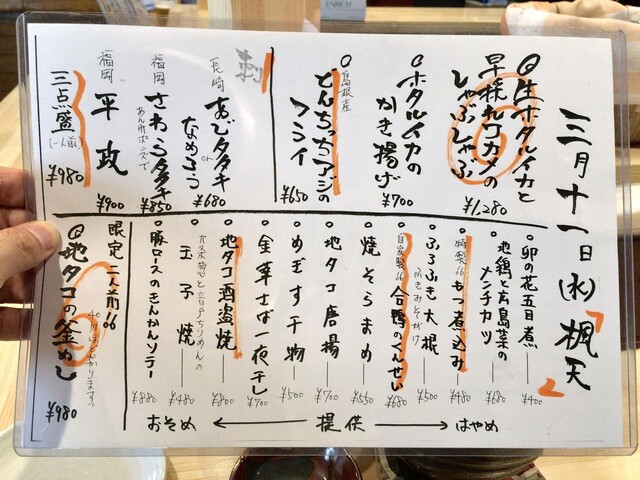 三月十一日(水)楓天
◎生ホタルイカと
早採れワカメの
しゃぶしゃぶ
¥1,280
○ホタルイカの
かき揚げ
¥700
○島根産
どんちっちアジの
フライ
¥650
刺
長崎
あじタタキ
or
なめろう
¥680
福岡
さわらタタキ
あん肝ポン酢で
¥850
福岡
平政
¥900
三点盛(一人前)
¥980
○卯の花五目煮
¥400
○地鶏と広島菜の
メンチカツ
¥680
○特製
もつ煮込み
¥480
○ふろふき大根
ふきみそがけ
¥500
○自家製
合鴨のくんせい
¥680
○焼そらまめ
¥550
○地タコ唐揚
¥700
○めぎす干物
¥500
○金華さば一夜干し
¥700
○地タコ酒盗焼
¥800
○九条葱と音戸ちりめんの
玉子焼
¥480
○豚ロースのきんかんソテー
¥880
おそめ ← 提供 → はやめ
限定二人前
◎地タコの釜めし
40分ほどかかります。
¥980